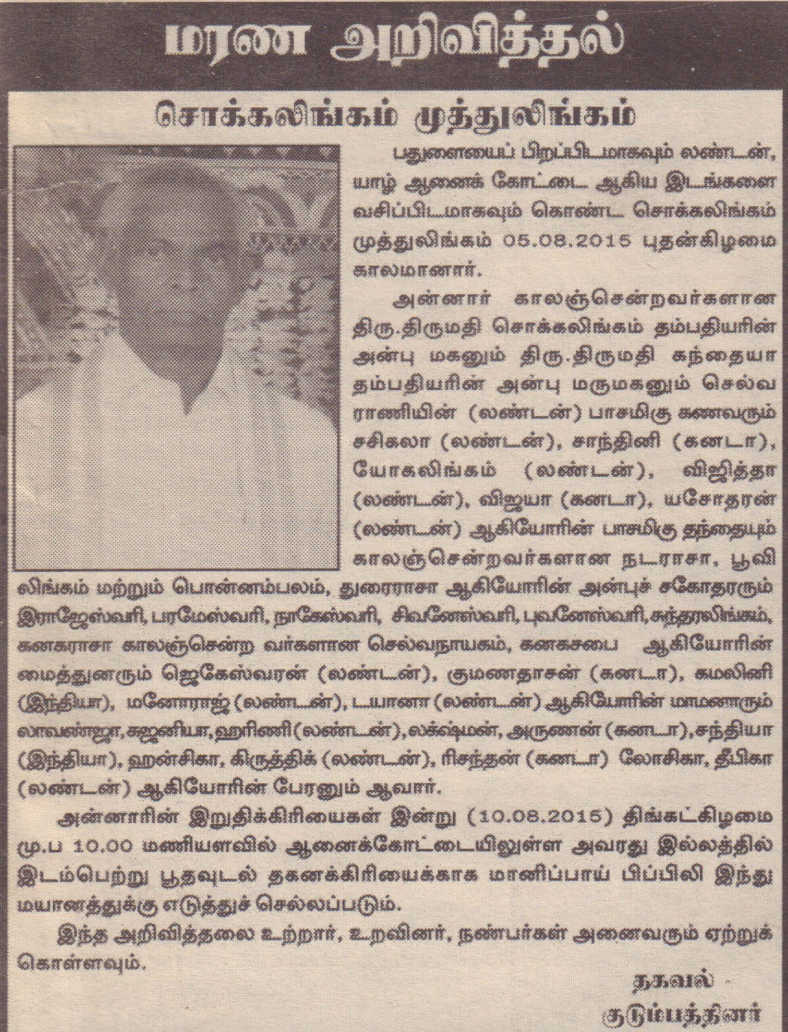 மரண அறிவித்தல்
சொக்கலிங்கம் முத்துலிங்கம்
பதுளையைப் பிறப்பிடமாகவும் லண்டன்,
யாழ் ஆனைக் கோட்டை ஆகிய இடங்களை
வசிப்பிடமாகவும் கொண்ட சொக்கலிங்கம்
முத்துலிங்கம் 05.08.2015 புதன்கிழமை
காலமானார்.
அன்னார் காலஞ்சென்றவர்களான
திரு.திருமதி சொக்கலிங்கம் தம்பதியரின்
அன்பு மகனும் திரு.திருமதி கந்தையா
தம்பதியரின் அன்பு மருமகனும் செல்வ
ராணியின் (லண்டன்) பாசமிகு கணவரும்
சசிகலா (லண்டன்), சாந்தினி (கனடா),
யோகலிங்கம் (லண்டன்), விஜித்தா
(லண்டன்), விஜயா (கனடா), யசோதரன்
(லண்டன்) ஆகியோரின் பாசமிகு தந்தையும்
காலஞ்சென்றவர்களான நடராசா, பூவி
லிங்கம் மற்றும் பொன்னம்பலம், துரைராசா ஆகியோரின் அன்புச் சகோதரரும்
இராஜேஸ்வரி, பரமேஸ்வரி, நாகேஸ்வரி, சிவனேஸ்வரி, புவனேஸ்வரி, சுந்தரலிங்கம்,
கனகராசா காலஞ்சென்ற வர்களான செல்வநாயகம், கனகசபை ஆகியோரின்
மைத்துனரும் ஜெகேஸ்வரன் (லண்டன்), குமணதாசன் (கனடா), கமலினி
(இந்தியா), மனோராஜ் (லண்டன்), டயானா (லண்டன்) ஆகியோரின் மாமனாரும்
லாவண்ஜா, கஜனியா, ஹரிணி (லண்டன்), லக்ஷ்மன், அருணன் (கனடா), சந்தியா
(இந்தியா), ஹன்சிகா, கிருத்திக் (லண்டன்), ரிசந்தன் (கனடா) லோசிகா, தீபிகா
(லண்டன்) ஆகியோரின் பேரனும் ஆவார்.
அன்னாரின் இறுதிக்கிரியைகள் இன்று (10.08.2015) திங்கட்கிழமை
மு.ப 10.00 மணியளவில் ஆனைக்கோட்டையிலுள்ள அவரது இல்லத்தில்
இடம்பெற்று பூதவுடல் தகனக்கிரியைக்காக மானிப்பாய் பிப்பிலி இந்து
மயானத்துக்கு எடுத்துச் செல்லப்படும்.
இந்த அறிவித்தலை உற்றார், உறவினர், நண்பர்கள் அனைவரும் ஏற்றுக்
கொள்ளவும்.
தகவல்
குடும்பத்தினர்